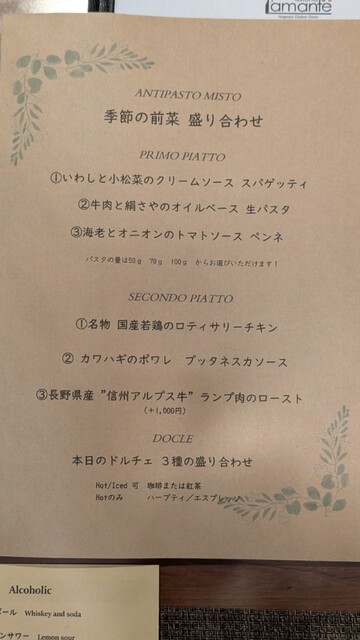 amante
ANTIPASTO MISTO
季節の前菜 盛り合わせ
PRIMO PIATTO
①いわしと小松菜のクリームソース スパゲッティ
②牛肉と絹さやのオイルベース 生パスタ
③海老とオニオンのトマトソース ペンネ
パスタの量は50g 70g 100g からお選びいただけます！
SECONDO PIATTO
①名物 国産若鶏のロティサリーチキン
② カワハギのポワレ プッタネスカソース
③長野県産 ”信州アルプス牛” ランプ肉のロースト
(＋1,000円)
DOCLE
本日のドルチェ 3種の盛り合わせ
Hot/Iced 可 珈琲または紅茶
Hotのみ ハーブティ／エスプレッソ
Alcoholic
ボール Whiskey and soda
ンサワー Lemon sour